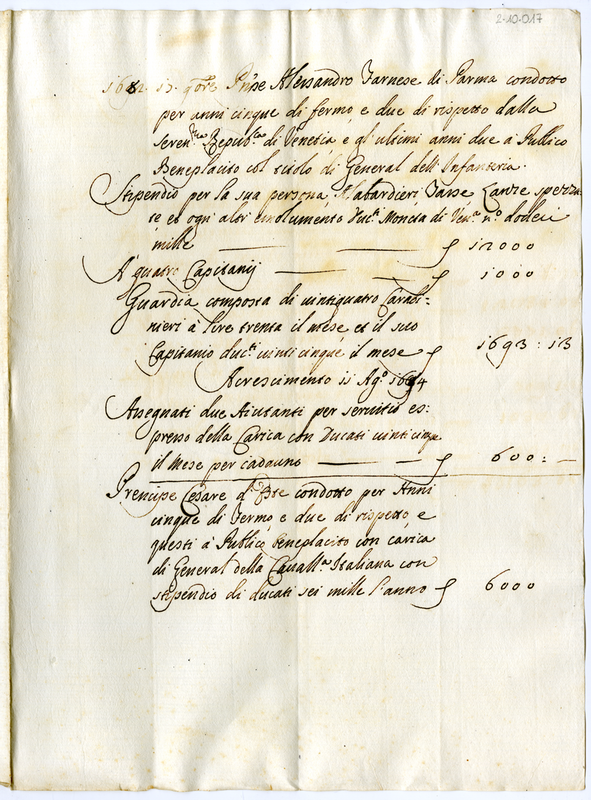 2-10-017
1682. 13. 9bre Prnse Alessandro Farnese di Parma condotto
per anni cinque di fermo e due di rispetto dalla
Seren.ma Repub.ca di Venetia, e gl'ultimi anni due à Publico
Beneplacito col titolo di General dell'Infanteria.
Stipendio per la sua persona, Alabardieri, Tasse, Lanze spezza:
te et ogni altro emolumento Duc.ti Moneta di Ven.a n.o dodeci
mille — — ʃ 12000
A quatro Capitanij — — ʃ 1000
Guardia composta di vintiquatro Carabi:
nieri à lire trenta il mese et il suo
Capitanio duc.ti vinticinque il mese ʃ 1693 : 13
Acrescimento 11 Ag.o 1684
Assegnati due Aiutanti per servitio es:
presso della Carica con Ducati vinticinque
il mese per cadauno — — ʃ 600 : —
Prencipe Cesare d'Este condotto per Anni
cinque di Fermo e due di rispetto, e
questi à Publico beneplacito con carica
di General della Cavall.a Italiana con
stipendio di ducati sei mille l'anno ʃ 6000